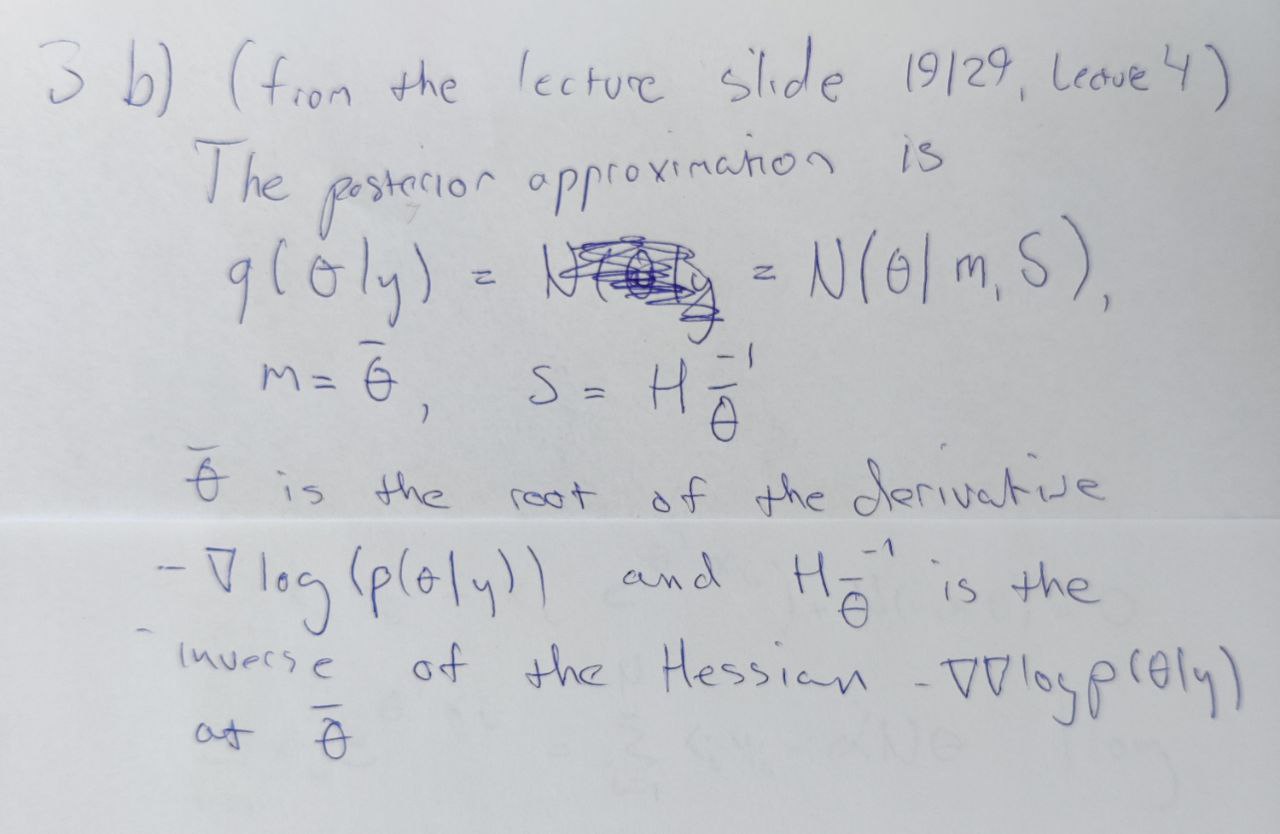 3 b) (from the lecture slide 19/29, Lecture 4)
The posterior approximation is
q(θ|y) = = N(θ|m, S),
m = θ̄, S = H_θ̄^-1
θ̄ is the root of the derivative
-∇ log(p(θ|y)) and H_θ̄^-1 is the
inverse of the Hessian -∇∇log p(θ|y)
at θ̄